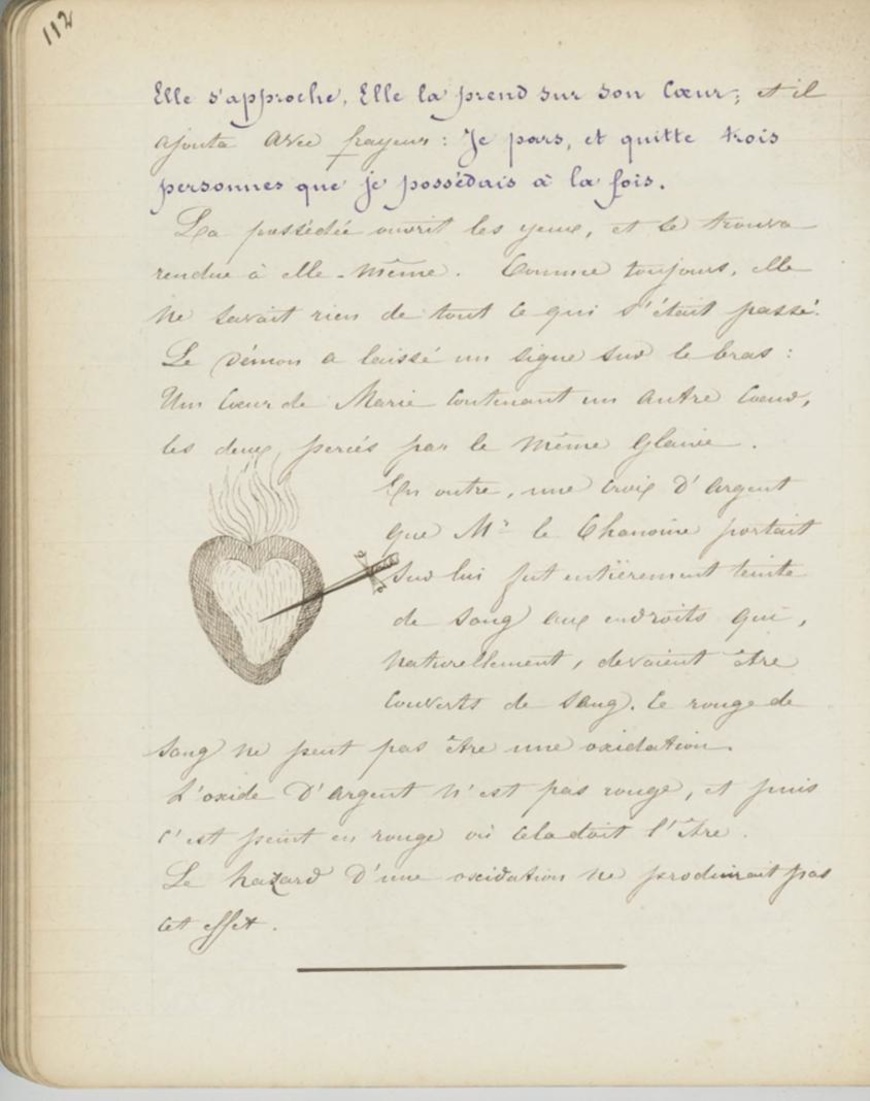 112
Elle s'approche. Elle la prend sur son Cœur; et il
ajouta avec frayeur : Je pars, et quitte trois
personnes que je possédais à la fois.
La possédée ouvrit les yeux, et se trouva
rendue à elle-même. Comme toujours, elle
ne savait rien de tout ce qui s'était passé.
Le Démon a laissé un signe sur le bras :
Un Cœur de Marie contenant un autre Cœur,
les deux percés par le même Glaive.
En outre, une croix d'argent
que Mr le Chanoine portait
sur lui fut entièrement teinte
de sang aux endroits qui,
naturellement, devaient être
couverts de sang. Ce rouge de
sang ne peut pas être une oxidation.
L'oxide d'argent n'est pas rouge, et puis
c'est peint en rouge où cela doit l'être.
Le hazard d'une oxidation ne produirait pas
cet effet.